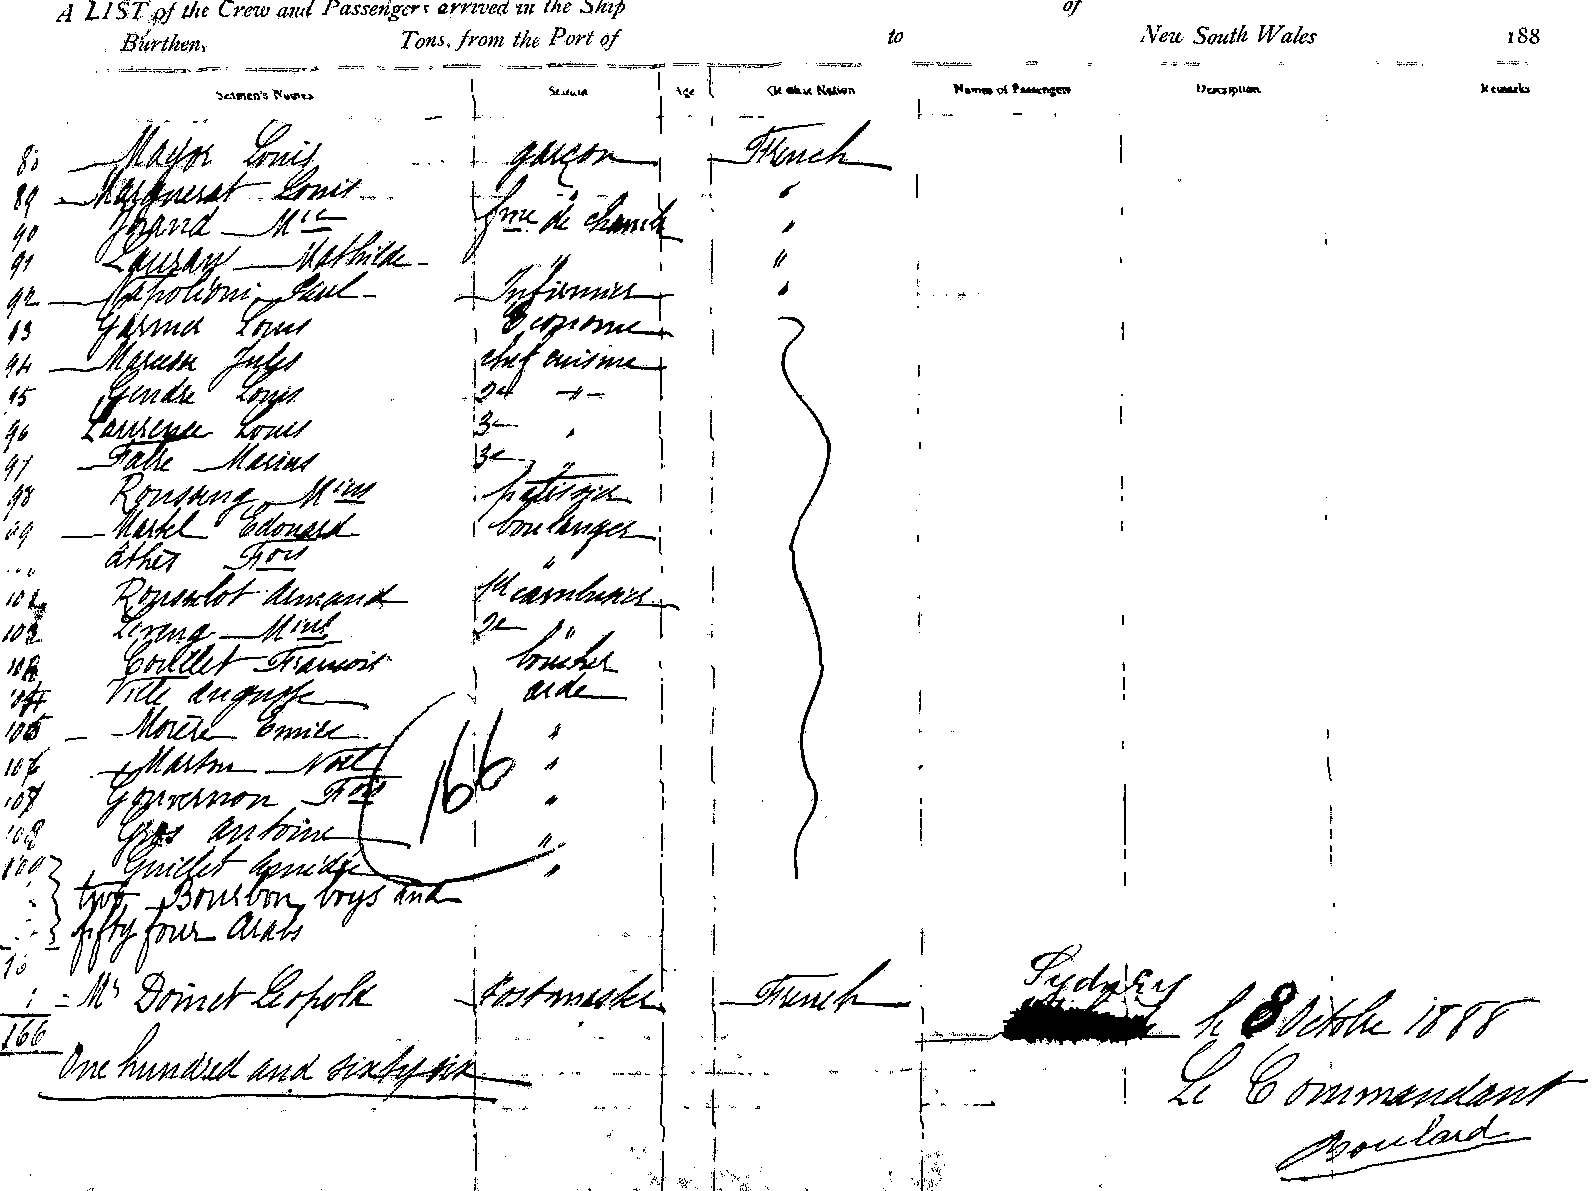 A LIST of the Crew and Passengers arrived in the Ship of
Burthen, Tons, from the Port of to New South Wales 188
Seamen's Names Station Age Of what Nation Names of Passengers Description Remarks
Mayor Louis garçon French
89 Marguerat Louis "
90 Grand fme de chamb "
91 Mathilde " "
92 Napoléoni Paul Infirmier "
93 Garnier Louis Econome
94 Jules chef cuisine
95 Gendre Louis 2e "
96 Laurence Louis 3e "
97 Fabre Marius 3e "
98 patissier
99 Martel Edouard boulanger
Fcois "
101 Rousselot Armand 1er cambusier
102 2e "
103 Coullet Francois boucher
104 Ville auguste aide
105 Emile "
106 Marton Noel "
107 Gouvernon Fcois "
108 Gros antoine "
109 Guillet "
166
two Bourbon boys and
fifty four Arabs
Mr Doinet Leopold Postmaster French
Sydney
le 8 Octobre 1888
166
One hundred and sixty six
Le Commandant
Boulard